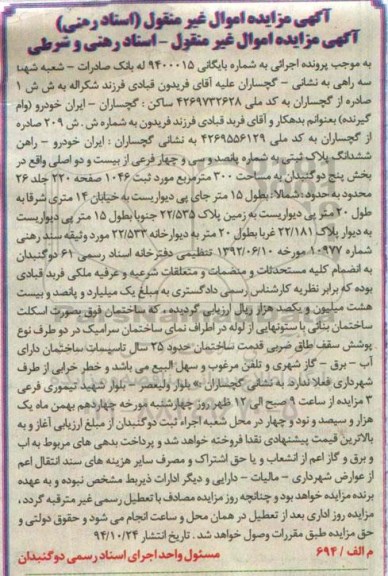 آگهی مزایده اموال غیر منقول (اسناد رهنی)
آگهی مزایده اموال غیر منقول - اسناد رهنی و شرطی
به موجب پرونده اجرائی به شماره بایگانی ۹۴۰۰۰۱۵ له بانک صادرات - شعبه شهدا
سه راهی به نشانی - گچساران علیه آقای فریدون قبادی فرزند شکراله به ش ش ۱
صادره از گچساران به کد ملی ۴۲۶۹۷۳۲۶۲۸ ساکن : گچساران - ایران خودرو (وام
گیرنده) بعنوانم بدهکار و آقای فربد قبادی فرزند فریدون به شماره ش . ش ۲۰۹ صادره
از گچساران به کد ملی ۴۲۶۹۵۵۶۱۲۹ به نشانی گچساران : ایران خودرو - راهن
ششدانگ پلاک ثبتی به شماره پانصد و سی و چهار فرعی از بیست و دو اصلی واقع در
بخش پنج دوگنبدان به مساحت ۳۰۰ مترمربع مورد ثبت ۱۰۴۶ صفحه ۲۲۰ جلد ۲۶
محدود به حدود: شمالا: بطول ۱۵ متر جای پی دیواریست به خیابان ۱۴ متری شرقا به
طول ۲۰ متر پی دیواریست به زمین پلاک ۲۲/۵۳۵ جنوبا بطول ۱۵ متر پی دیواریست
به دیوار پلاک ۲۲/۱۸۱ غربا بطول ۲۰ متر به دیوارخانه ۲۲/۵۳۳ مورد وثیقه سند رهنی
شماره ۱۰۹۷۷ مورخه ۱۳۹۲/۰۶/۱۰ تنظیمی دفترخانه اسناد رسمی ۶۱ دوگنبدان
به انضمام کلیه مستحدثات و منضمات و متعلقات شرعیه و عرفیه ملکی فربد قبادی
بوده که برابر نظریه کارشناس رسمی دادگستری به مبلغ یک میلیارد و پانصد و بیست
هشت میلیون و یکصد هزار ریال ارزیابی گردیده که ساختمان فوق بصورت اسکلت
ساختمان بنائی با ستونهایی از لوله در اطراف نمای ساختمان سرامیک در دو طرف نوع
پوشش سقف طاق ضربی قدمت ساختمان حدود ۲۵ سال تاسیسات ساختمان دارای
آب - برق - گاز شهری و تلفن مرغوب و سهل البیع می باشد و خطر خرابی از طرف
شهرداری فعلا ندارد به نشانی گچساران - بلوار ولیعصر - بلوار شهید تیموزی فرعی
۳ مزایده از ساعت ۹ صبح الی ۱۲ ظهر روز چهارشنبه مورخه چهاردهم بهمن ماه یک
هزار و سیصد و نود و چهار در محل شعبه اجراء ثبت دوگنبدان از مبلغ ارزیابی آغاز و به
بالاترین قیمت پیشنهادی نقدا فروخته خواهد شد و پرداخت بدهی های مربوط به اب
و برق و گاز اعم از انشعاب و یا حق اشتراک و مصرف سایر هزینه های سند انتقال اعم
از عوارض شهرداری - مالیات - دارایی و دیگر ادارات ذیربط مشخص نبوده و به عهده
برنده مزایده خواهد بود و چنانچه روز مزایده مصادف با تعطیل رسمی غیر مترقبه گردد ،
مزایده روز اداری بعد از تعطیل در همان محل و ساعت انجام می شود و حقوق دولتی و
حق مزایده طبق مقررات وصول خواهد شد . تاریخ انتشار ۹۴/۱۰/۲۴
م الف / ۶۹۴ مسئول واحد اجرای اسناد رسمی دوگنبدان